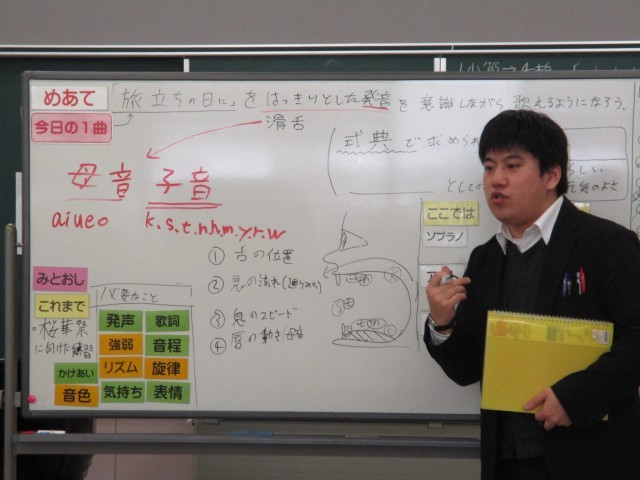 めあて 「旅立ちの日に」をはっきりとした発音を意識しながら歌えるようになろう。
今日の1曲
滑舌
式典で求められ
母音 子音
aiueo k.s.t.n.h.m.y.r.w
としての
ここでは
ソプラノ
① 舌の位置
② 息の流れ
③ 息のスピード
④ 唇の動き
みとおし
これまで
必要なこと
桜華祭
に向けた練習
発声 歌詞
強弱 音程
かけあい リズム 旋律
音色 気持ち 表情